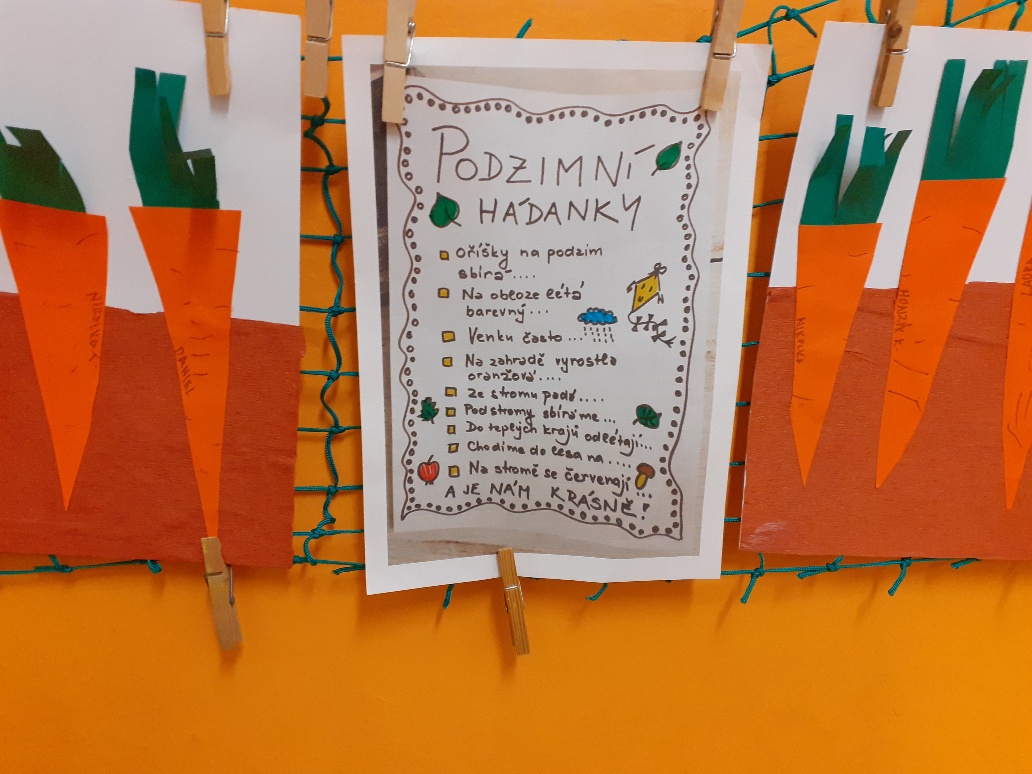 PODZIMNÍ
HÁDANKY
Oříšky na podzim
sbírá....
Na obloze létá
barevný...
Venku často ...
Na zahradě vyrostla
oranžová....
Ze stromu padá....
Pod stromy sbíráme...
Do teplejch krajů odlétají...
Chodíme do lesa na ....
Na stromě se červenají...
A JE NÁM KRÁSNĚ!
DANIEL